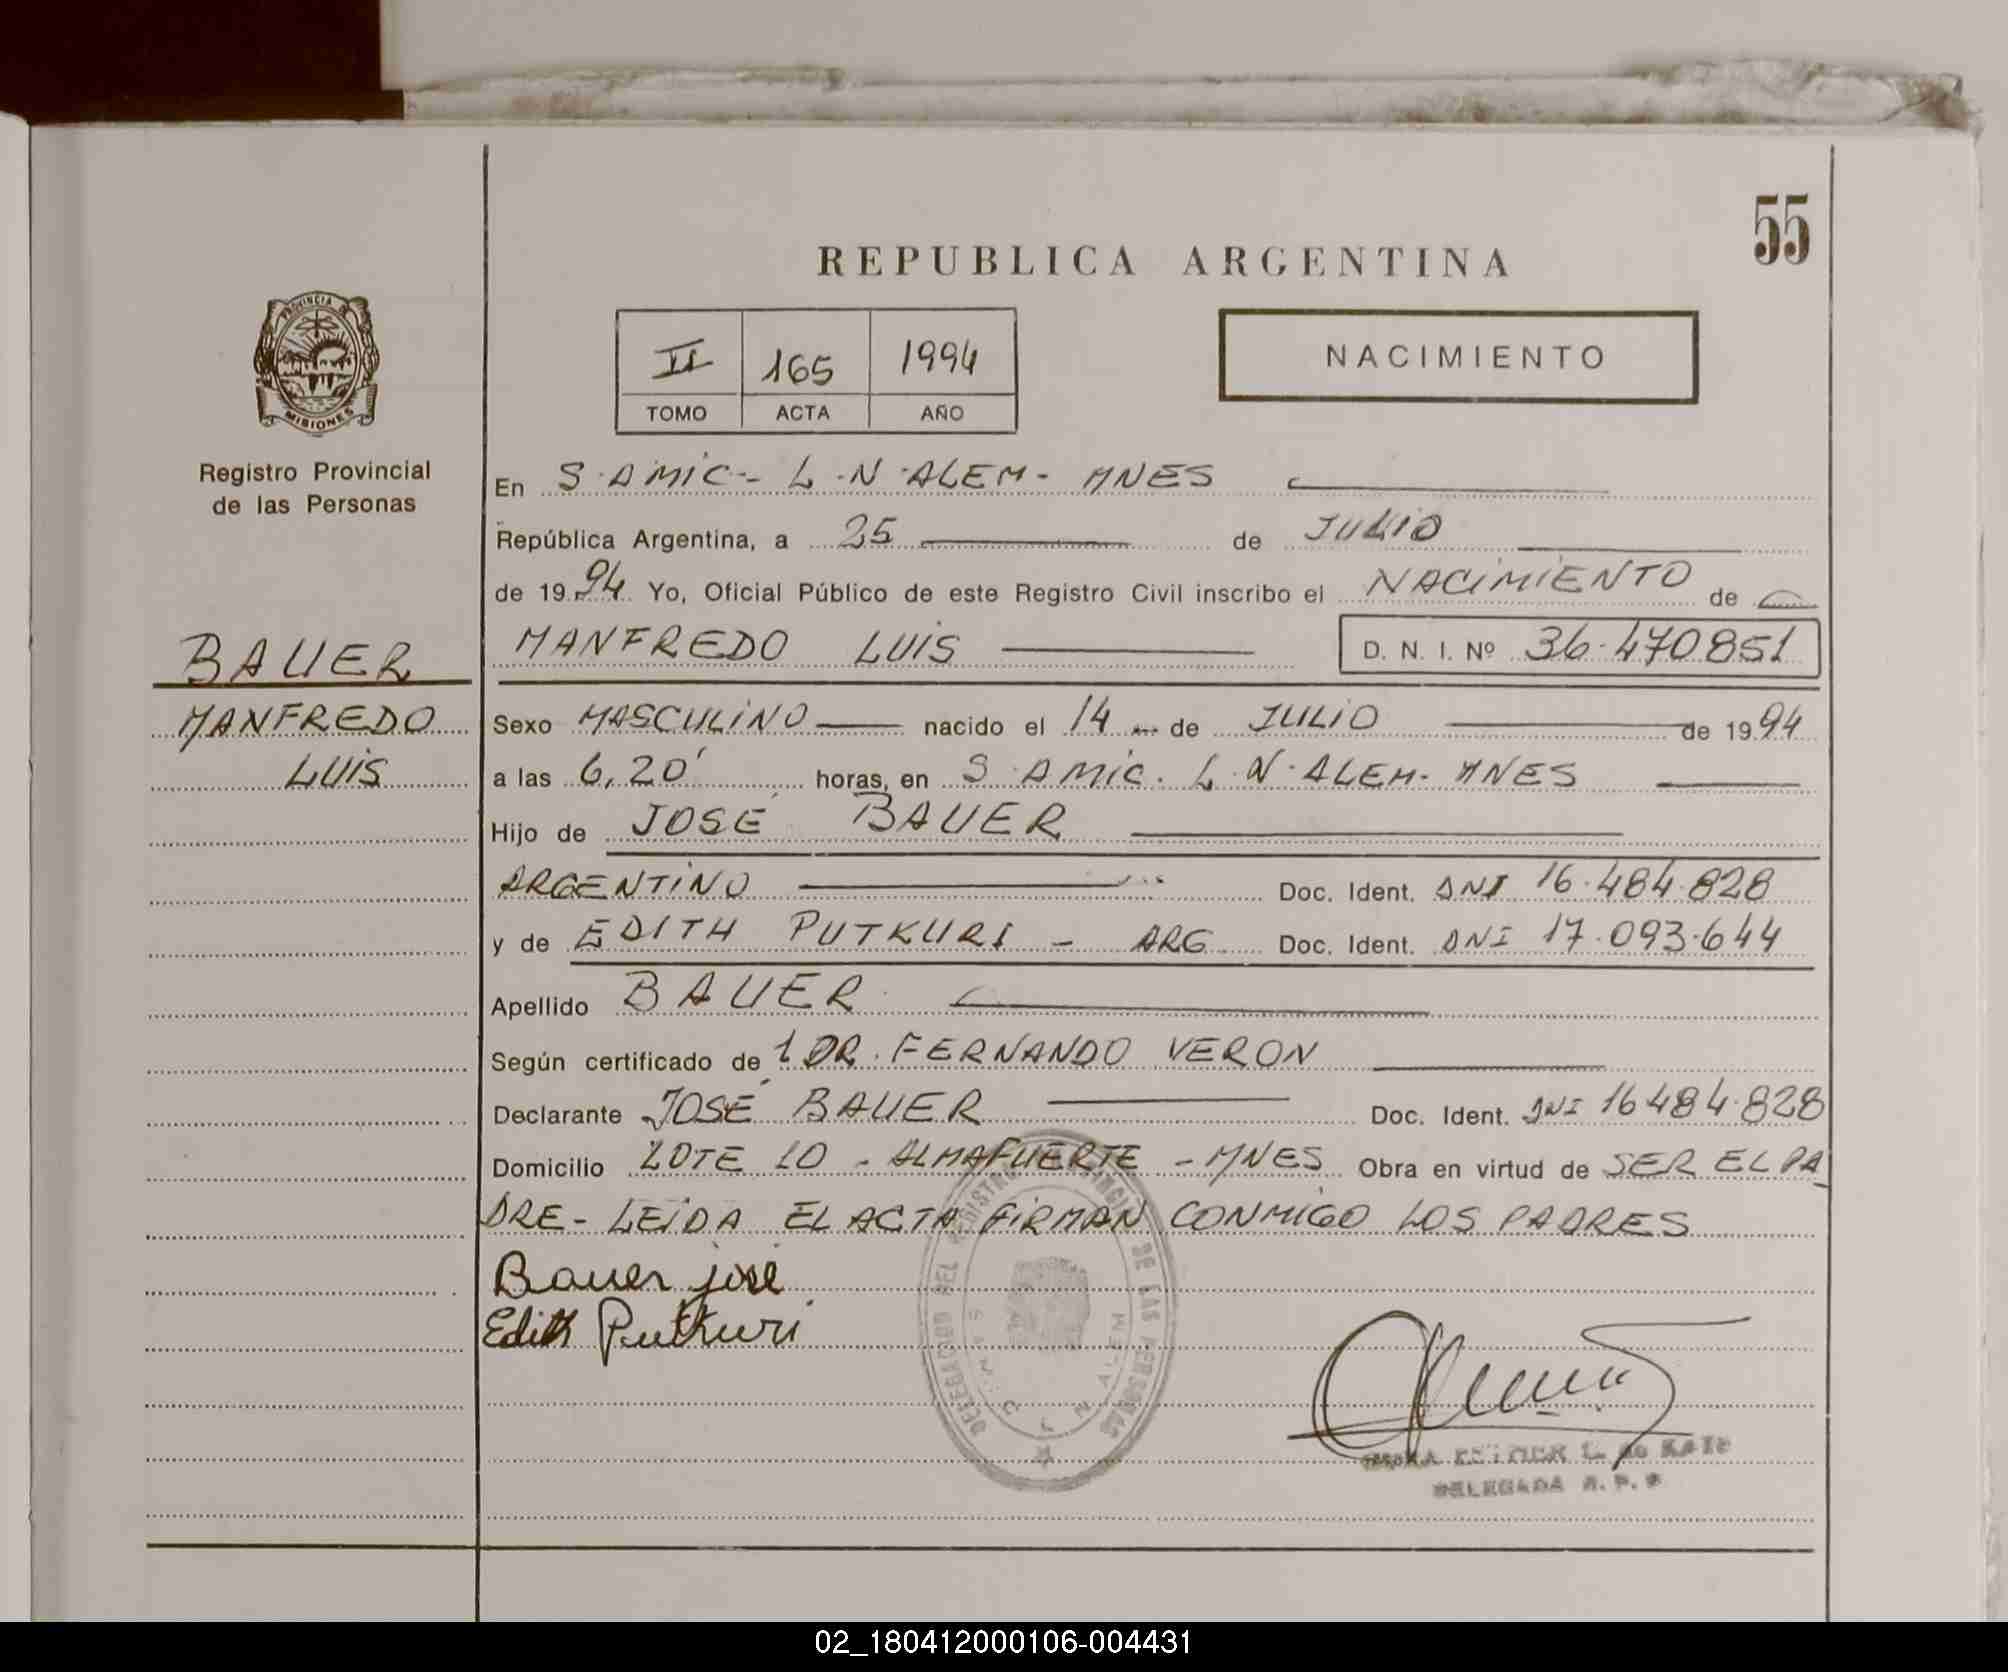 55
REPUBLICA ARGENTINA
II 165 1994
TOMO ACTA AÑO
NACIMIENTO
PROVINCIA DE
MISIONES
Registro Provincial
de las Personas
BAUER
MANFREDO
LUIS
En S. AMIC - L. N. ALEM - MNES
República Argentina, a 25 de JULIO
de 1994 Yo, Oficial Público de este Registro Civil inscribo el NACIMIENTO de
MANFREDO LUIS D. N. I. Nº 36.470851
Sexo MASCULINO nacido el 14 de JULIO de 1994
a las 6,20' horas, en S. AMIC. L. N. ALEM - MNES
Hijo de JOSÉ BAUER
ARGENTINO Doc. Ident. DNI 16.484.828
y de EDITH PUTKURI - ARG Doc. Ident. DNI 17.093.644
Apellido BAUER
Según certificado de 1 DR. FERNANDO VERON
Declarante JOSÉ BAUER Doc. Ident. DNI 16484.828
Domicilio LOTE 10 - ALMAFUERTE - MNES Obra en virtud de SER EL PA_
DRE - LEIDA EL ACTA FIRMAN CONMIGO LOS PADRES
Bauer josé
Edith Putkuri
DE LAS PERSONAS
ALEM
DELEGADA R. P. P
02_180412000106-004431